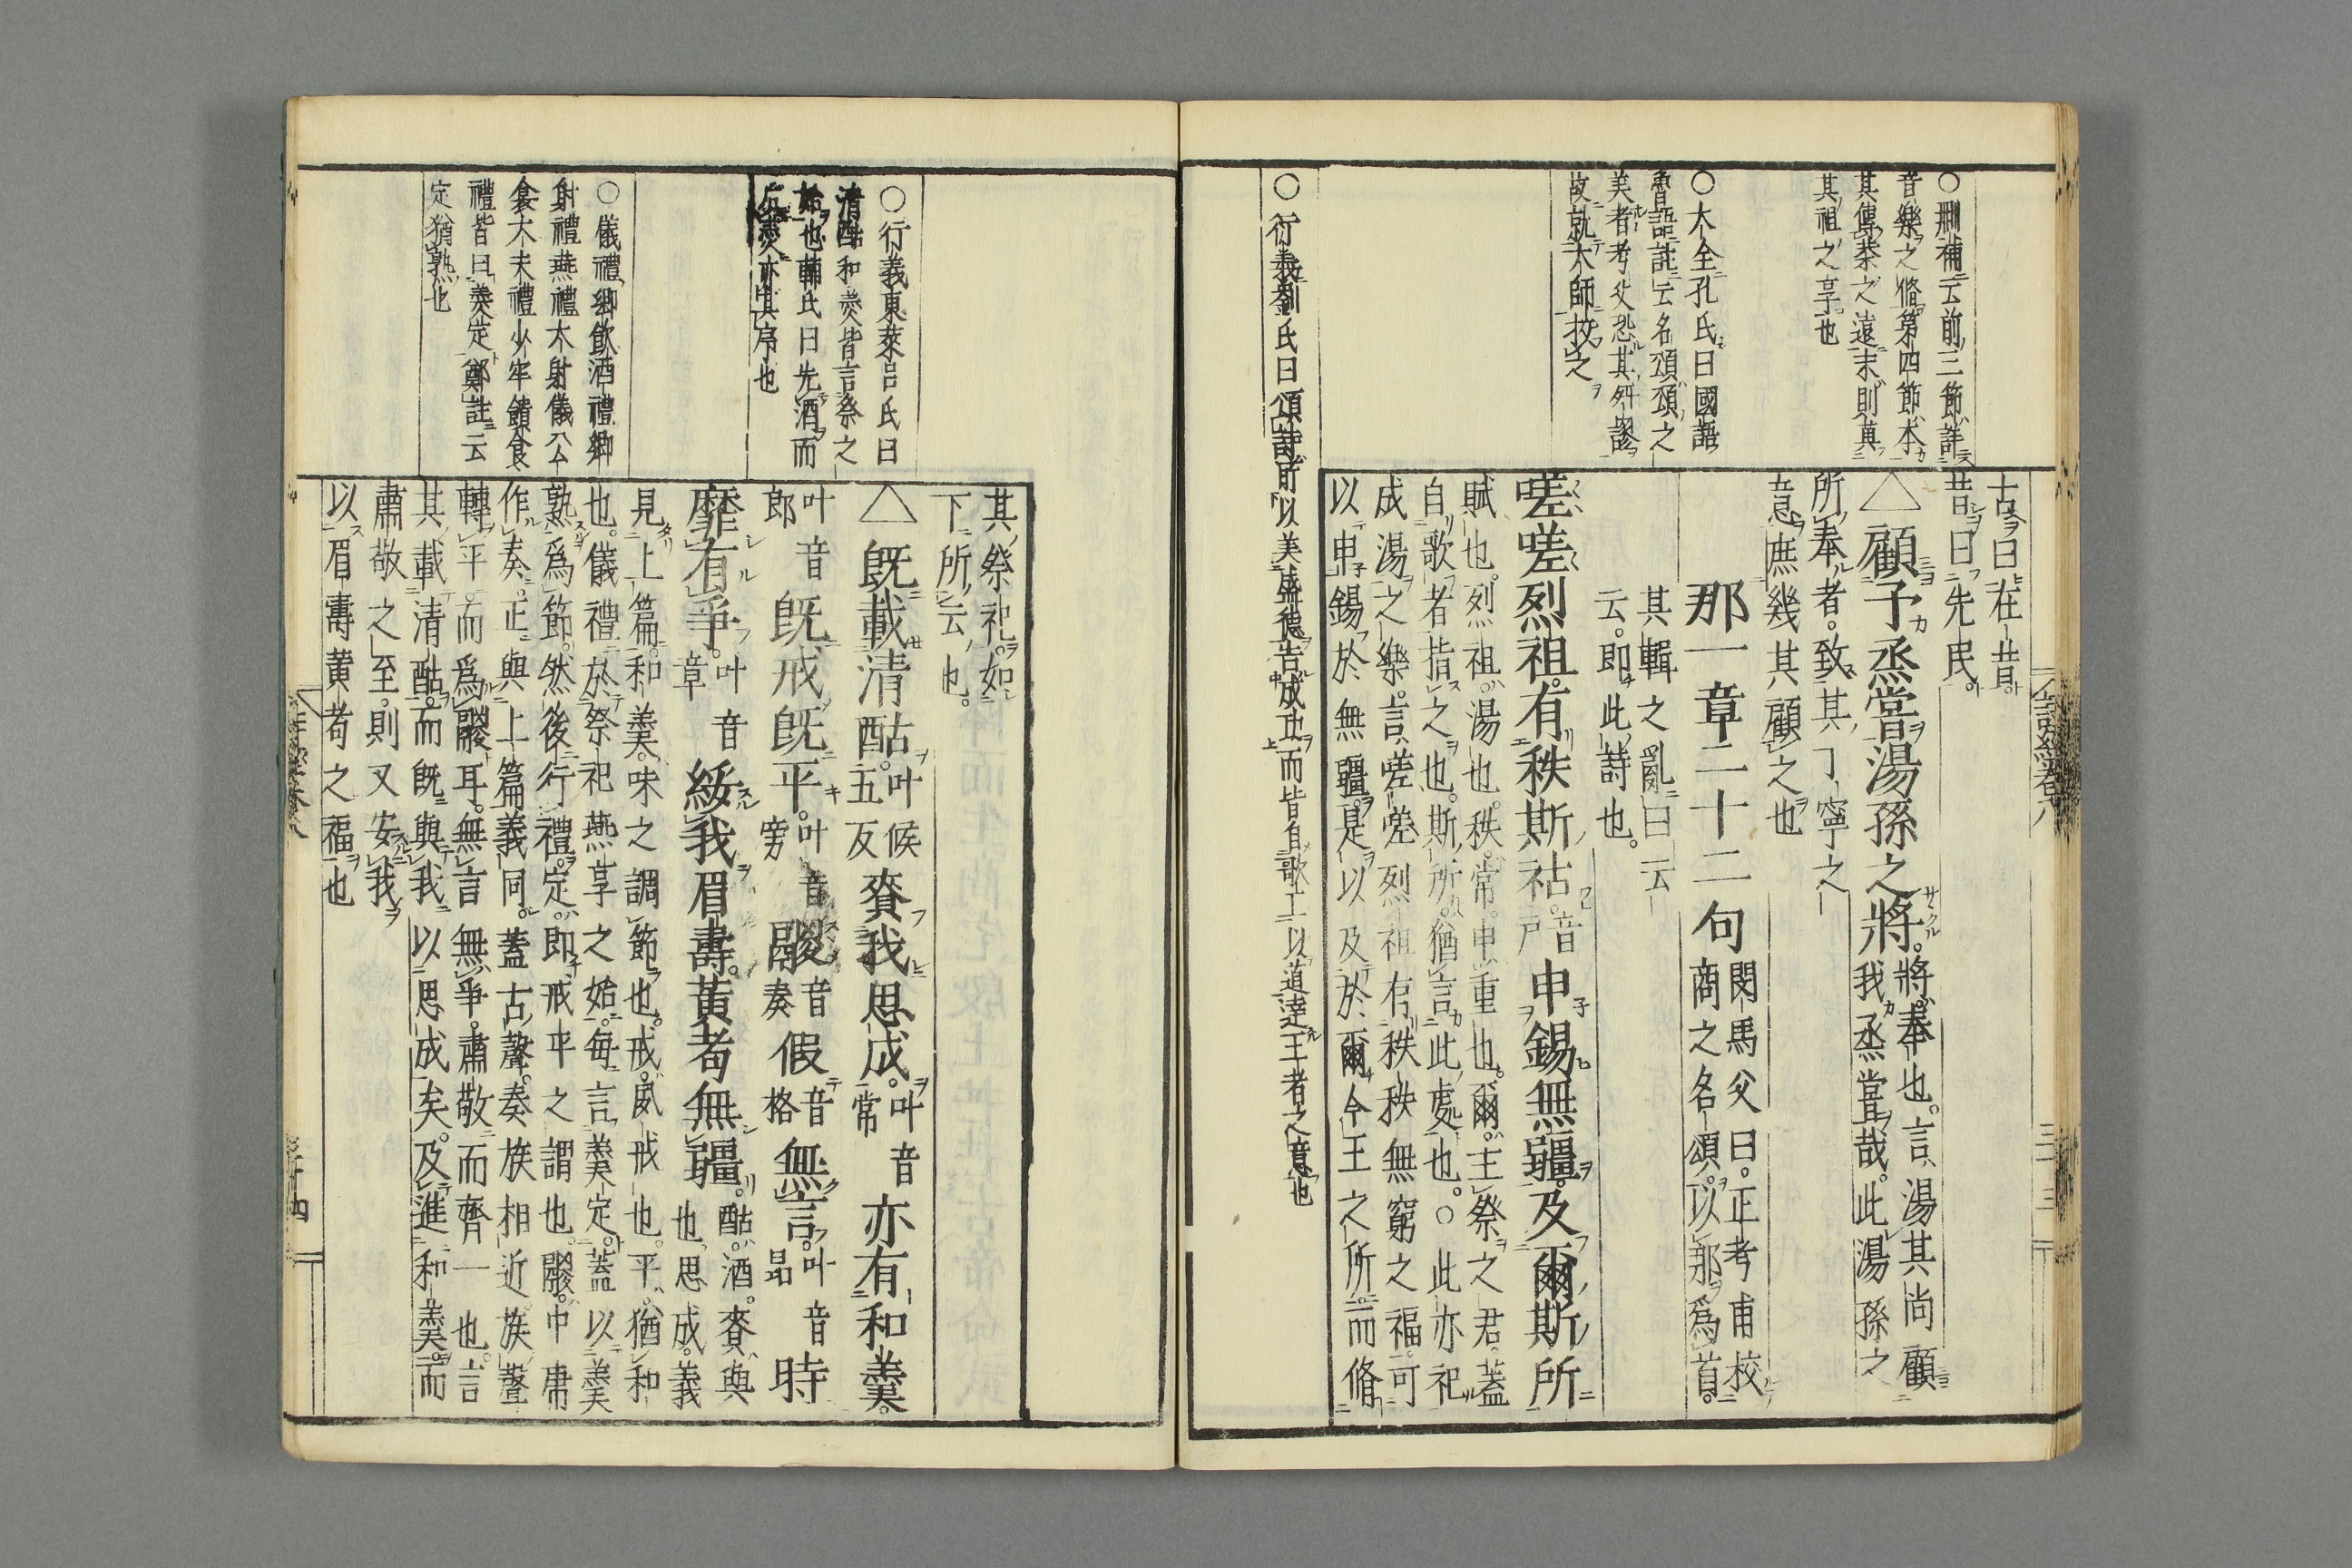 ○刪補云前三節詳
音樂之條第四節本
其傳恭之遠末則冀
其祖之享也
○大全孔氏曰國語
魯語註云名頌頌之
美者考父恐其舛謬
故就大師挍之
○衍義劉氏曰頌詩前以美盛德告成功而皆自歌工以道達主者之意也
古曰在昔
昔曰先民
△顧予烝嘗湯孫之將將奉也言湯其尚顧
我烝嘗哉此湯孫之
所奉者致其丁寧之
意庶幾其顧之也
那一章二十二句閔馬父曰正考甫校
商之名頌以那爲首
其輯之亂曰云
云即此詩也
嗟嗟烈祖有秩斯祜音
戶申錫無疆及爾斯所
賦也烈祖湯也秩常申重也爾主祭之君蓋
自歌者指之也斯所猶言此處也○此亦祀
成湯之樂言嗟嗟烈祖有秩秩無窮之福可
以申錫於無疆是以及於爾今王之所而脩
三十三
其祭祀如
下所云也
○衍義東萊呂氏曰
清酤和羹皆言祭之
始也輔氏曰先酒而
后羹亦其序也
○儀禮鄉飲酒禮鄉
射禮燕禮大射儀公
食大夫禮少牢饋食
禮皆曰羹定鄭註云
定猶熟也
△既載清酤叶候
五反賚我思成叶音
常亦有和羹
叶音
郎既戒既平叶音
旁鬷音
奏假音
格無言叶音
昂時
靡有爭叶音
章綏我眉壽黃耇無疆酤酒賚與
也思成義
見上篇和羹味之調節也戒夙戒也平猶和
也儀禮於祭祀燕享之始每言羹定蓋以羹
熟爲節然後行禮定即戒平之謂也鬷中庸
作奏正與上篇義同蓋古聲奏族相近族聲
轉平而爲鬷耳無言無爭肅敬而齊一也言
其載清酤而既與我以思成矣及進和羹而
肅敬之至則又安我
以眉壽黃耇之福也